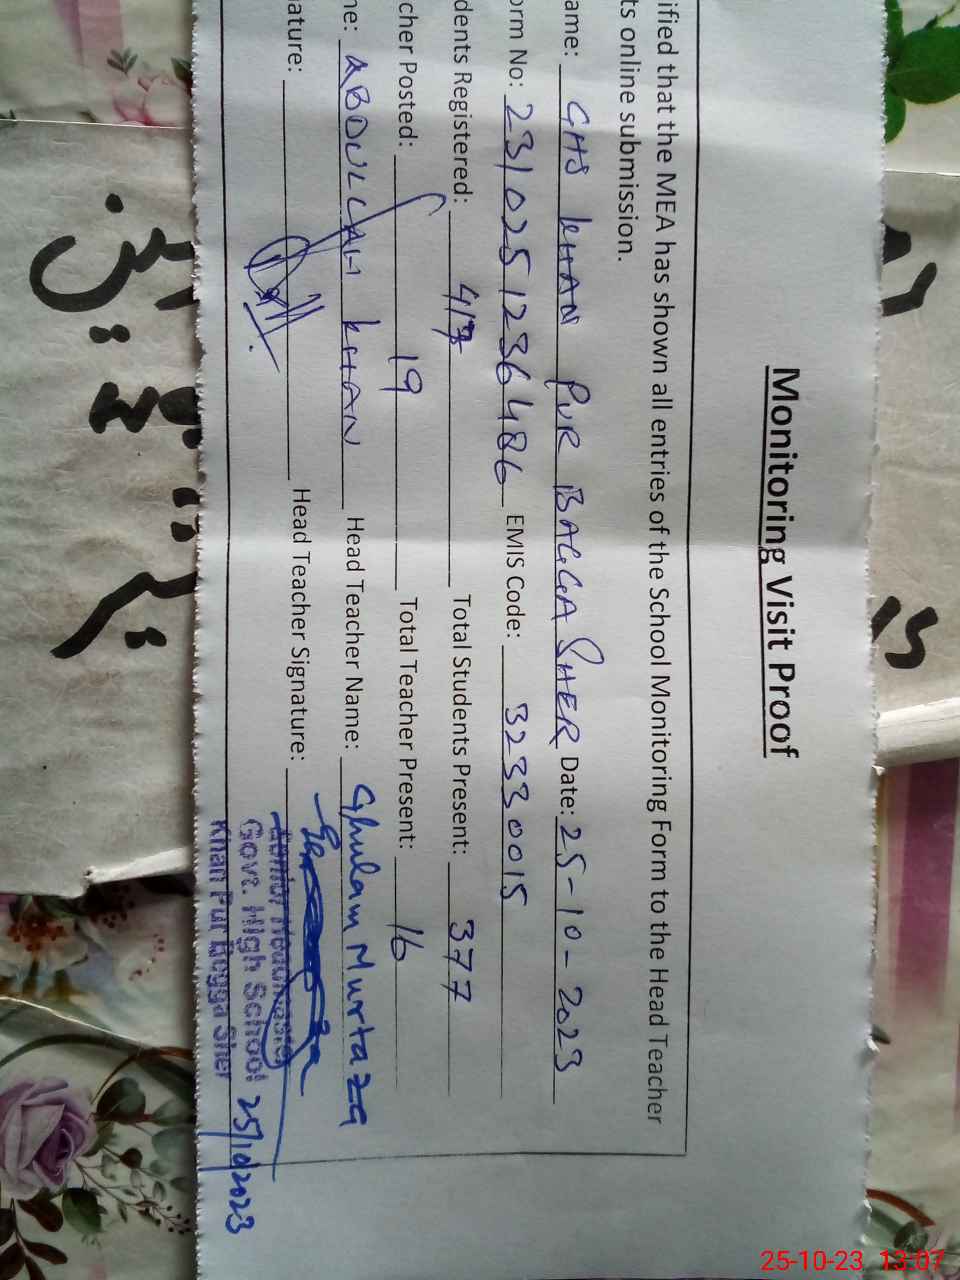 Monitoring Visit Proof
ified that the MEA has shown all entries of the School Monitoring Form to the Head Teacher
ts online submission.
ame: GHS KHAN PUR BAGGA SHER Date: 25-10-2023
orm No: 2310251236486 EMIS Code: 32330015
dents Registered: Total Students Present: 377
cher Posted: 19 Total Teacher Present: 16
ne: ABDULLAH KHAN Head Teacher Name: Ghulam Murtaza
ature: Head Teacher Signature:
Senior Headmaster
Govt. High School 25/10/2023
Khan Pur Bagga Sher
25-10-23 13:07